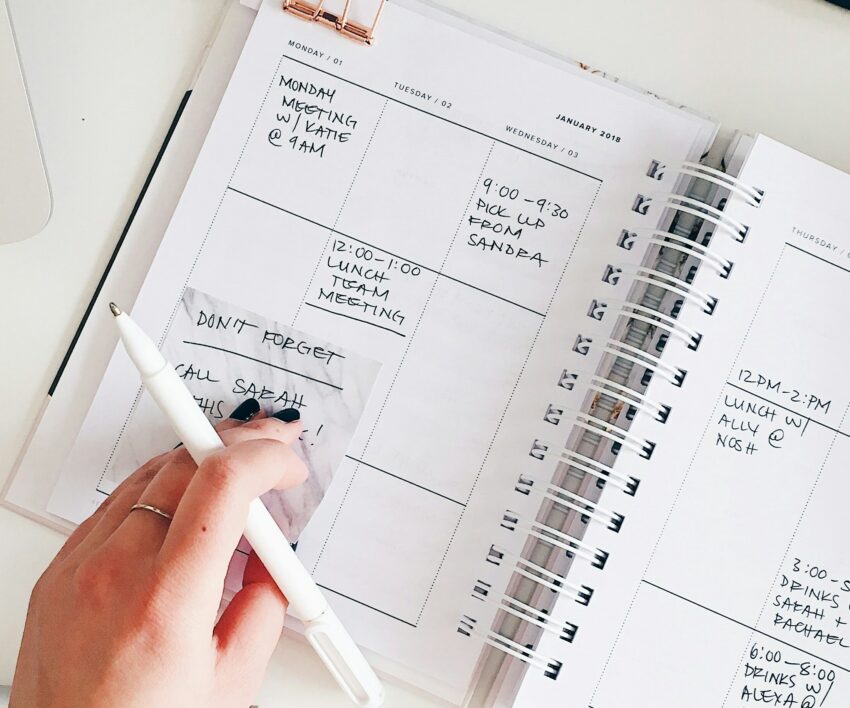 MONDAY / 01
MONDAY
MEETING
W/ KATIE
@ 9AM
TUESDAY / 02
12:00-1:00
LUNCH
TEAM
MEETING
JANUARY 2018
WEDNESDAY / 03
9:00-9:30
PICK UP
FROM
SANDRA
DON'T FORGET
CALL SARAH
THIS
!
THURSDAY /
12PM-2PM
LUNCH W/
ALLY @
NOSH
3:00-
DRINKS
SARAH +
RACHAEL
6:00-8:00
DRINKS W/
ALEXA @